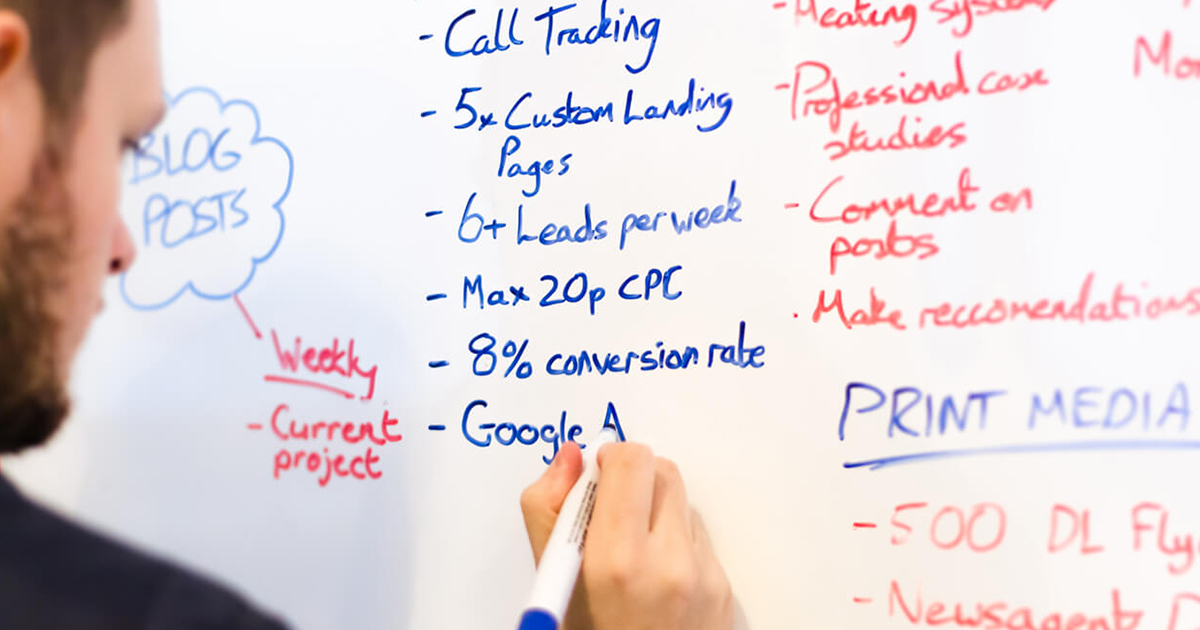 BLOG
POSTS
Weekly
- Current
project
- Call Tracking
- 5x Custom Landing
Pages
- 6+ Leads per week
- Max 20p CPC
- 8% conversion rate
- Google A
- Heating systems
- Professional case
studies
- Comment on
posts
. Make reccomendations
PRINT MEDIA
- 500 DL
- Newsagent